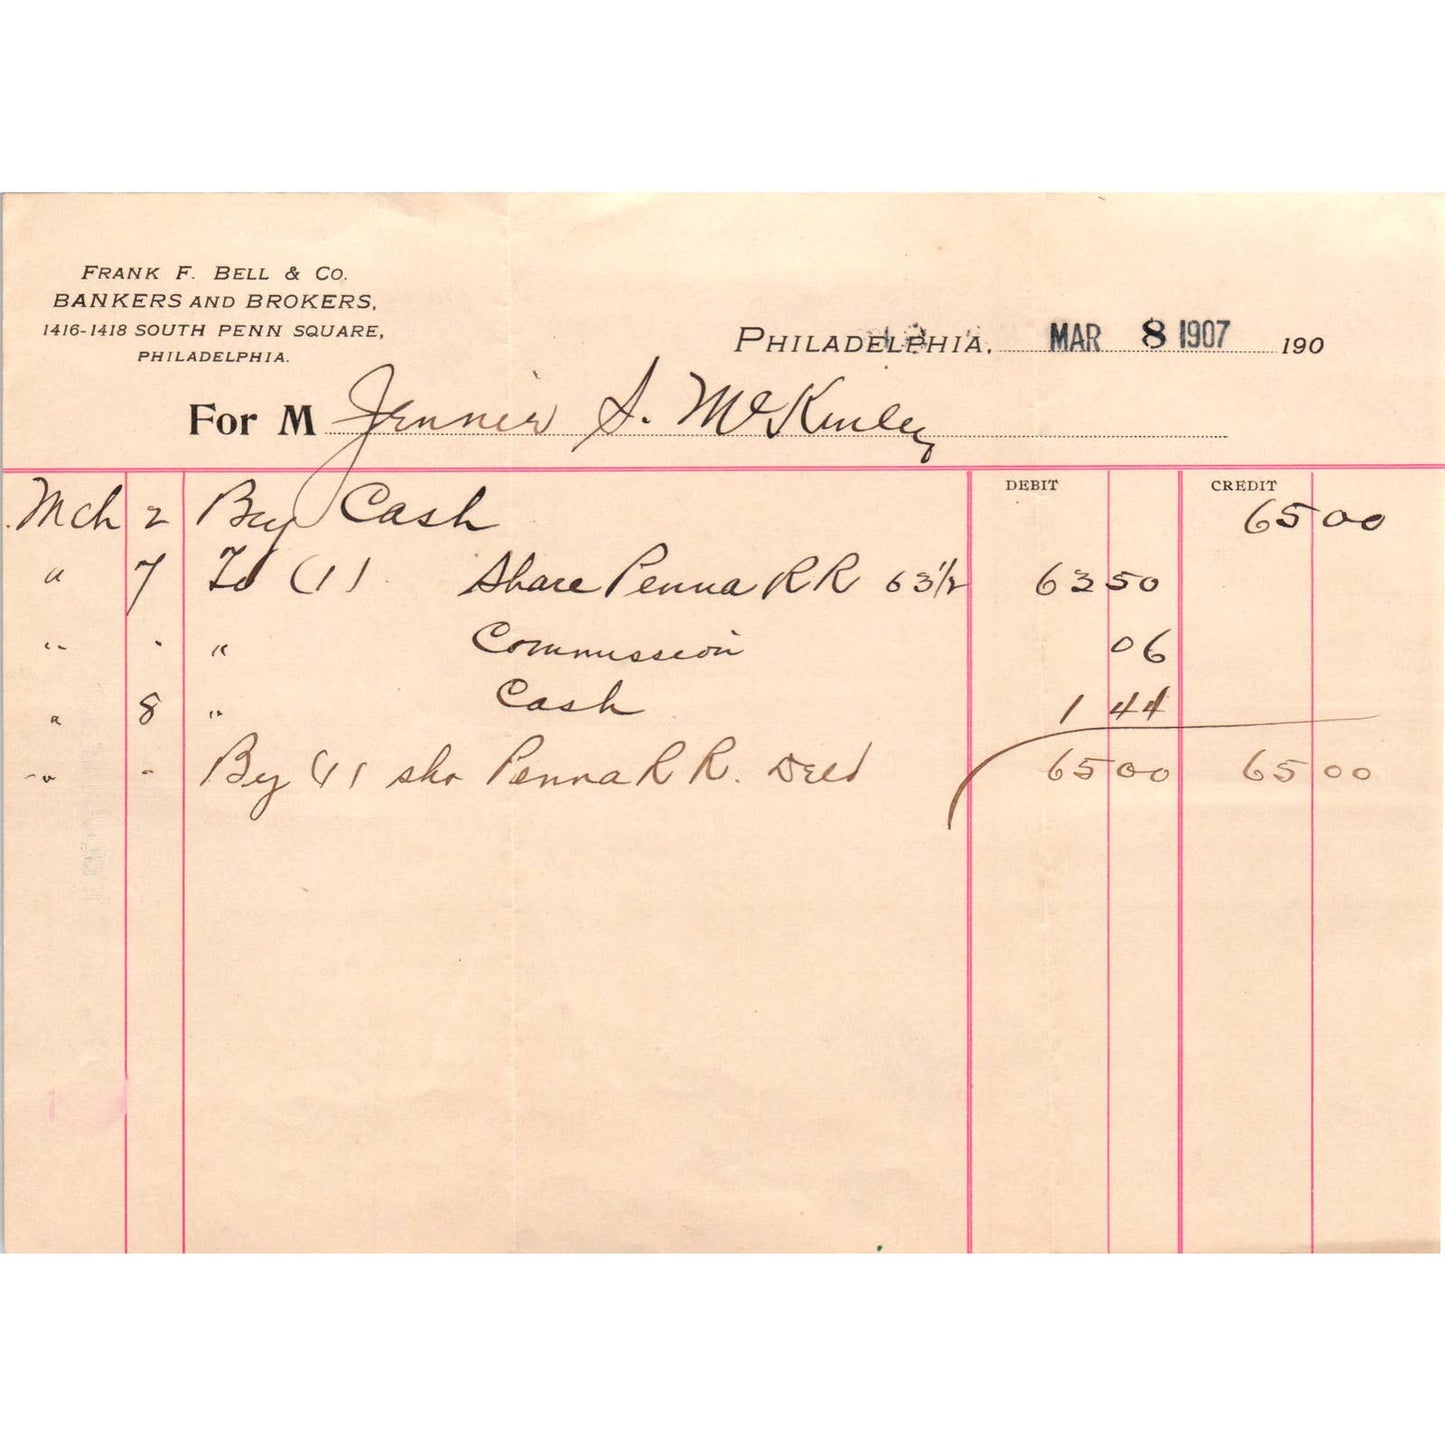 FRANK F. BELL & CO.
BANKERS AND BROKERS,
1416-1418 SOUTH PENN SQUARE,
PHILADELPHIA.
PHILADELPHIA, MAR 8 1907 190
For M Jennie S. McKinley
DEBIT CREDIT
Mch 2 By Cash 65 00
" 7 To (1) Share Penna R R 63 1/2 63 50
" " " Commission 06
" 8 " Cash 1 44
" " By (1) shr Penna R R. Deld 65 00 65 00